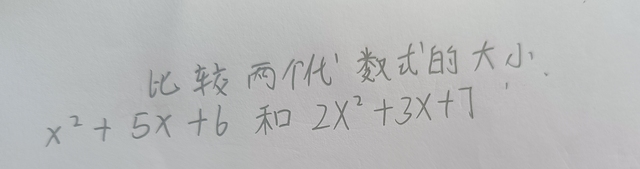 比较两个代数式的大小.
x² + 5x + 6 和 2x² + 3x + 7